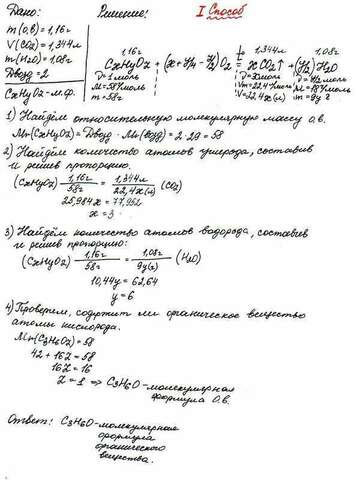 Дано:
Решение:
I Способ
m(о.в) = 1,16г
V(CO2) = 1,344л
m(H2O) = 1,08г
Dвозд = 2
CxHyOz - м.ф.
1,16г 1,344л 1,08г
CxHyOz + (x + y/4 - z/2)O2 = xCO2↑ + (y/2)H2O
ν = 1 моль ν = x моль ν = y/2 моль
M = 58г/моль Vm = 22,4 л/моль M = 18г/моль
m = 58г V = 22,4x(л) m = 9y г
1) Найдём относительную молекулярную массу о.в.
Mr(CxHyOz) = Dвозд · Mr(возд) = 2 · 29 = 58
2) Найдём количество атомов углерода, составив
и решив пропорцию:
(CxHyOz) 1,16г/58г = 1,344л/22,4x(л) (CO2)
25,984x = 77,952
x = 3
3) Найдём количество атомов водорода, составив
и решив пропорцию:
(CxHyOz) 1,16г/58г = 1,08г/9y(г) (H2O)
10,44y = 62,64
y = 6
4) Проверим, содержит ли органическое вещество
атомы кислорода.
Mr(C3H6Oz) = 58
42 + 16z = 58
16z = 16
z = 1 ⇒ C3H6O - молекулярная
формула о.в.
Ответ: C3H6O - молекулярная
формула
органического
вещества.